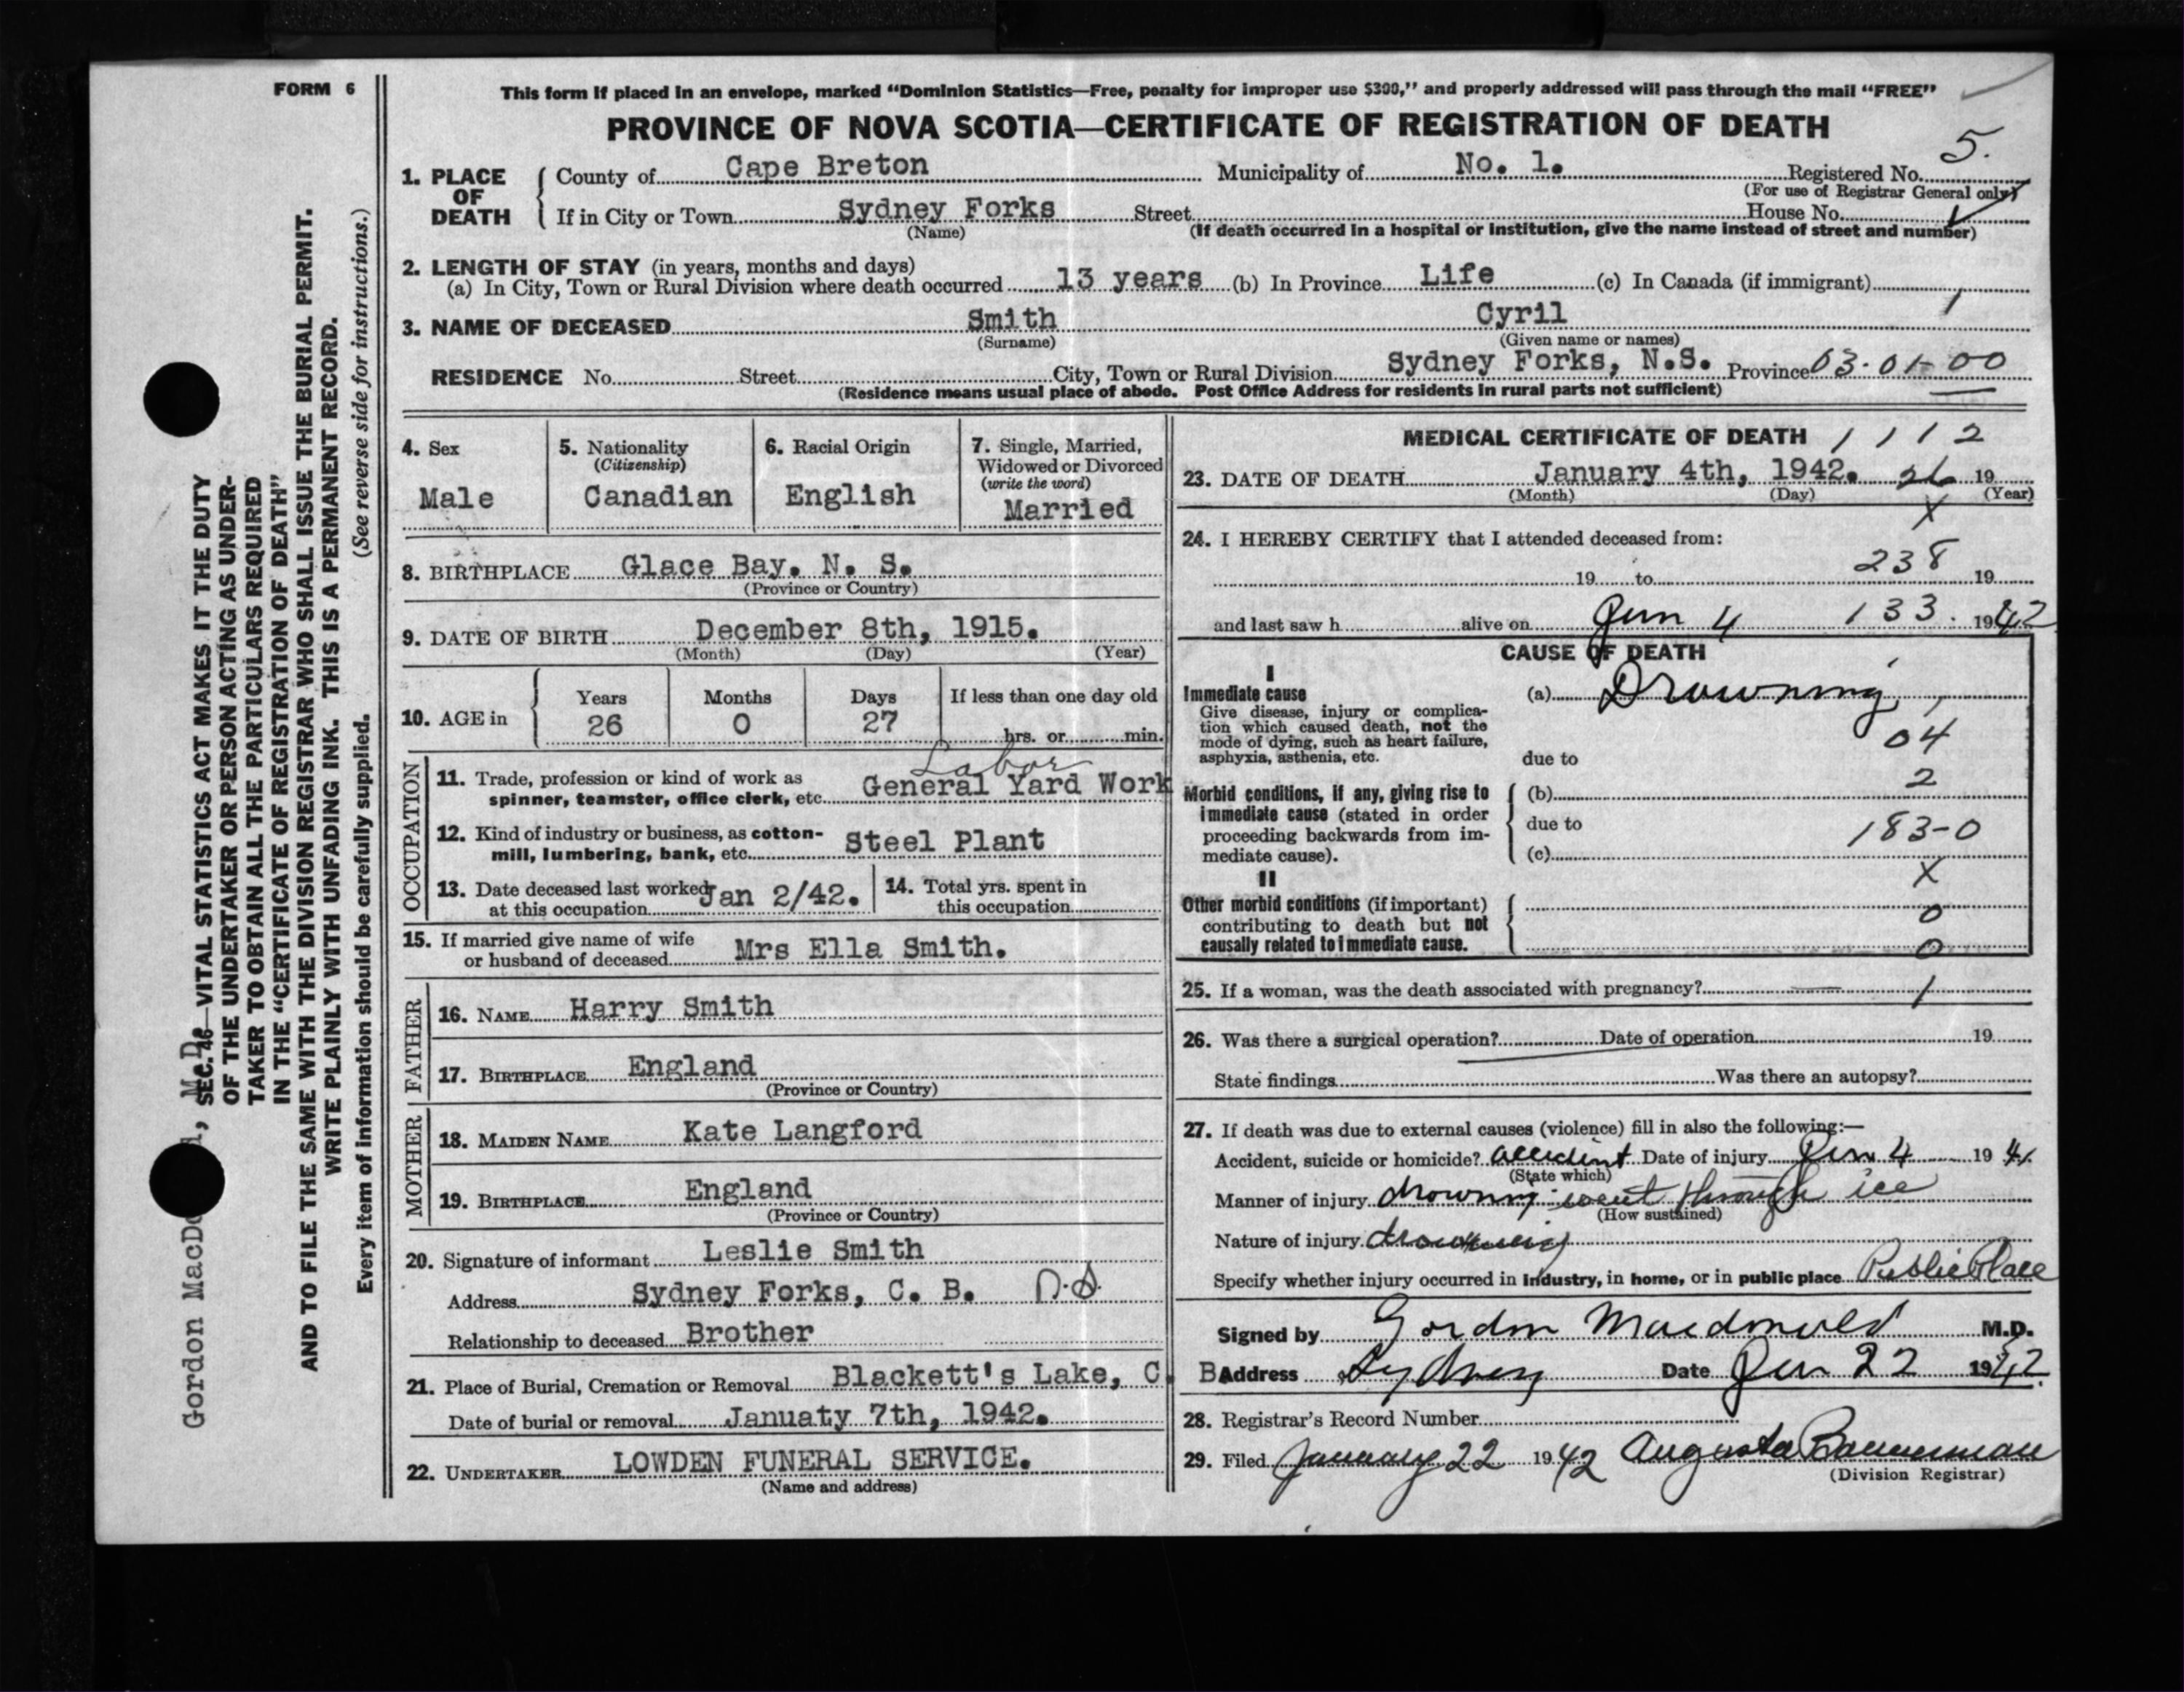 FORM 6
This form if placed in an envelope, marked "Dominion Statistics—Free, penalty for improper use $300," and properly addressed will pass through the mail "FREE"
PROVINCE OF NOVA SCOTIA—CERTIFICATE OF REGISTRATION OF DEATH
5.
1. PLACE OF DEATH
County of Cape Breton Municipality of No. 1. Registered No.
(For use of Registrar General only)
If in City or Town Sydney Forks Street House No.
(Name) (If death occurred in a hospital or institution, give the name instead of street and number)
2. LENGTH OF STAY (in years, months and days)
(a) In City, Town or Rural Division where death occurred 13 years (b) In Province Life (c) In Canada (if immigrant)
1
3. NAME OF DECEASED Smith Cyril
(Surname) (Given name or names)
RESIDENCE No. Street City, Town or Rural Division Sydney Forks, N.S. Province 03-01-00
(Residence means usual place of abode. Post Office Address for residents in rural parts not sufficient)
4. Sex
Male
5. Nationality
(Citizenship)
Canadian
6. Racial Origin
English
7. Single, Married,
Widowed or Divorced
(write the word)
Married
8. BIRTHPLACE Glace Bay. N. S.
(Province or Country)
9. DATE OF BIRTH December 8th, 1915.
(Month) (Day) (Year)
10. AGE in
Years Months Days If less than one day old
26 0 27 hrs. or min.
OCCUPATION
Labor
11. Trade, profession or kind of work as
spinner, teamster, office clerk, etc. General Yard Work
12. Kind of industry or business, as cotton-
mill, lumbering, bank, etc. Steel Plant
13. Date deceased last worked
at this occupation Jan 2/42.
14. Total yrs. spent in
this occupation
15. If married give name of wife
or husband of deceased Mrs Ella Smith.
FATHER
16. NAME Harry Smith
17. BIRTHPLACE England
(Province or Country)
MOTHER
18. MAIDEN NAME Kate Langford
19. BIRTHPLACE England
(Province or Country)
20. Signature of informant Leslie Smith
Address Sydney Forks, C. B. n.s.
Relationship to deceased Brother
21. Place of Burial, Cremation or Removal Blackett's Lake, C. B
Date of burial or removal Januaty 7th, 1942.
22. UNDERTAKER LOWDEN FUNERAL SERVICE.
(Name and address)
MEDICAL CERTIFICATE OF DEATH 1 1 1 2
23. DATE OF DEATH January 4th, 1942. 26 19
(Month) (Day) (Year)
X
24. I HEREBY CERTIFY that I attended deceased from:
19 to 238 19
and last saw h alive on Jan 4 133. 1942
CAUSE OF DEATH
I
Immediate cause
Give disease, injury or complica-
tion which caused death, not the
mode of dying, such as heart failure,
asphyxia, asthenia, etc.
(a) Drowning
04
due to
Morbid conditions, if any, giving rise to
immediate cause (stated in order
proceeding backwards from im-
mediate cause).
(b) 2
due to
183-0
(c)
X
II
Other morbid conditions (if important)
contributing to death but not
causally related to immediate cause.
0
0
25. If a woman, was the death associated with pregnancy? — 1
26. Was there a surgical operation? Date of operation 19
State findings Was there an autopsy?
27. If death was due to external causes (violence) fill in also the following:—
Accident, suicide or homicide? accident Date of injury Jan 4 19 41
(State which)
Manner of injury drowning - went through ice
(How sustained)
Nature of injury drowning
Specify whether injury occurred in industry, in home, or in public place Public Place
Signed by Gordon Macdonald M.D.
Address Sydney Date Jan 22 1942
28. Registrar's Record Number
29. Filed January 22 1942 Augusta Bannerman
(Division Registrar)
Gordon MacDo , M.D.
SEC. 46—VITAL STATISTICS ACT MAKES IT THE DUTY
OF THE UNDERTAKER OR PERSON ACTING AS UNDER-
TAKER TO OBTAIN ALL THE PARTICULARS REQUIRED
IN THE "CERTIFICATE OF REGISTRATION OF DEATH"
AND TO FILE THE SAME WITH THE DIVISION REGISTRAR WHO SHALL ISSUE THE BURIAL PERMIT.
WRITE PLAINLY WITH UNFADING INK. THIS IS A PERMANENT RECORD.
Every item of information should be carefully supplied. (See reverse side for instructions.)